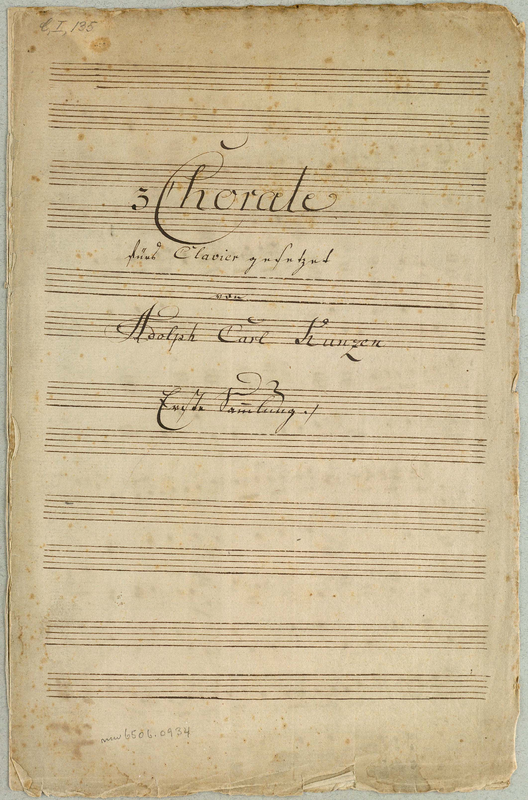 C, I, 135
3 Chorale
fürs Clavier gesetzet
von
Adolph Carl Kunzen
Erste Sammlung.
mu 6506.0934